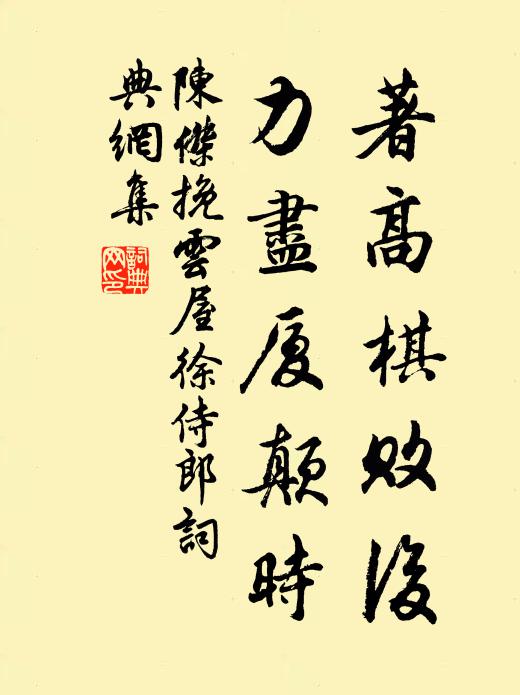 著高棋敗後
力盡厦顛時
陳傑挽雲屋徐侍郎詞
典網集
詞典
网印